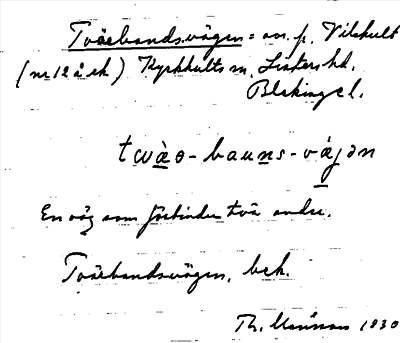 Tvärbandsvägen = on. p. Vilshult
(nr 12 å ek) Kyrkhults sn, Listers hd.
Blekinge l.
twào-bauns-vájən
En väg som förbinder två andra.
Tvärbandsvägen, bek.
Th. 1930